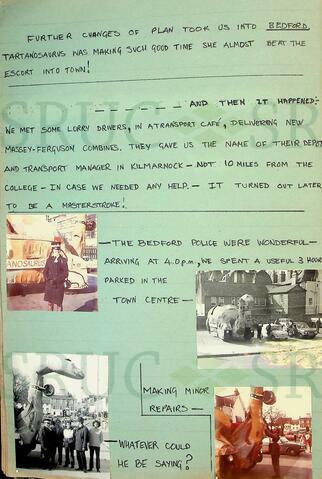 FURTHER CHANGES OF PLAN TOOK US INTO BEDFORD.
TARTANOSAURUS WAS MAKING SUCH GOOD TIME SHE ALMOST BEAT THE
ESCORT INTO TOWN!
— — — — — AND THEN IT HAPPENED:-
WE MET SOME LORRY DRIVERS, IN A TRANSPORT CAFÉ, DELIVERING NEW
MASSEY-FERGUSON COMBINES. THEY GAVE US THE NAME OF THEIR DEPOT
AND TRANSPORT MANAGER IN KILMARNOCK - NOT 10 MILES FROM THE
COLLEGE - IN CASE WE NEEDED ANY HELP. - IT TURNED OUT LATER
TO BE A MASTERSTROKE!
SRUC
SR
—THE BEDFORD POLICE WERE WONDERFUL—
ARRIVING AT 4.0 p.m., WE SPENT A USEFUL 3 HOUR
PARKED IN THE
TOWN CENTRE —
ANOSAURUS
SRUC
SR
MAKING MINOR
REPAIRS —
—WHATEVER COULD
HE BE SAYING?